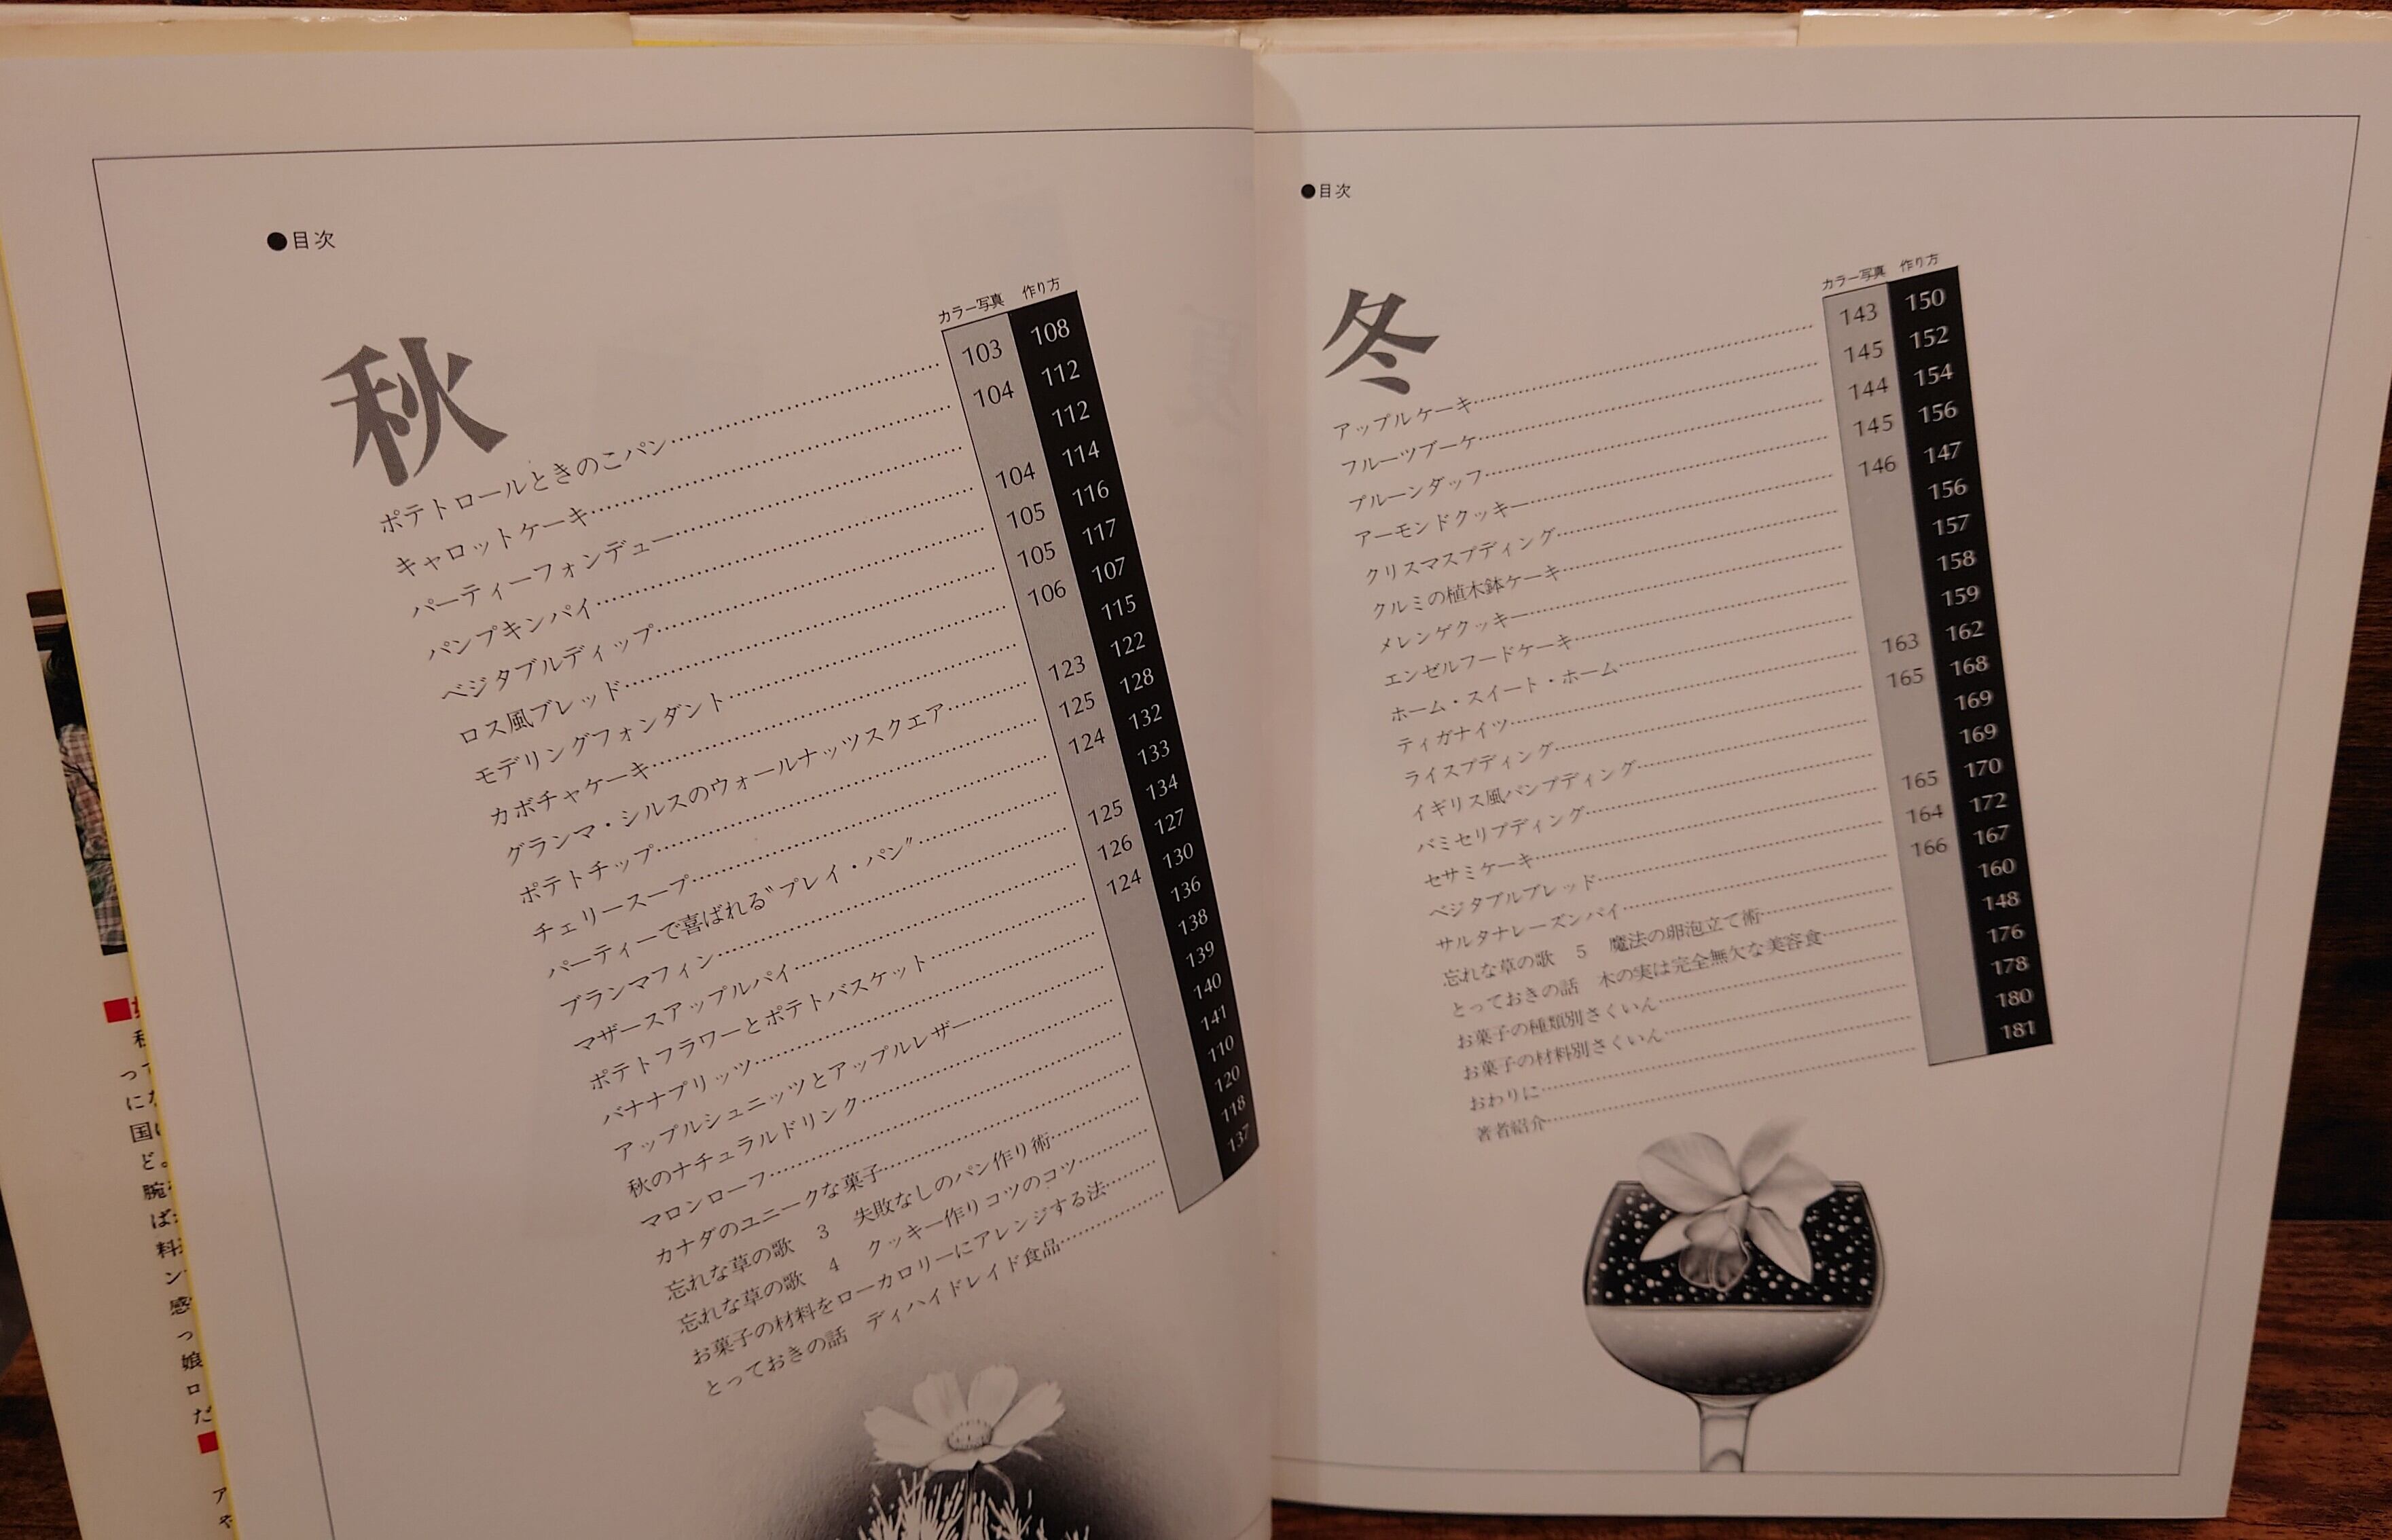 ●目次
秋
カラー写真 作り方
ポテトロールときのこパン…… 103 108
キャロットケーキ…… 104 112
パーティーフォンデュー…… 112
パンプキンパイ…… 104 114
ベジタブルディップ…… 105 116
ロス風ブレッド…… 105 117
モデリングフォンダント…… 106 107
カボチャケーキ…… 115
グランマ・シルスのウォールナッツスクエア…… 123 122
ポテトチップ…… 125 128
チェリースープ…… 124 132
パーティーで喜ばれる〝プレイ・パン〟…… 133
ブランマフィン…… 125 134
マザースアップルパイ…… 126 127
ポテトフラワーとポテトバスケット…… 124 130
バナナブリッツ…… 136
アップルシュニッツとアップルレザー…… 138
秋のナチュラルドリンク…… 139
マロンローフ…… 140
カナダのユニークな菓子…… 141
忘れな草の歌 3 失敗なしのパン作り術…… 110
忘れな草の歌 4 クッキー作りコツのコツ…… 120
お菓子の材料をローカロリーにアレンジする法…… 118
とっておきの話 ディハイドレイド食品…… 137
●目次
冬
カラー写真 作り方
アップルケーキ…… 143 150
フルーツブーケ…… 145 152
プルーンダッフ…… 144 154
アーモンドクッキー…… 145 156
クリスマスプディング…… 146 147
クルミの植木鉢ケーキ…… 156
メレンゲクッキー…… 157
エンゼルフードケーキ…… 158
ホーム・スイート・ホーム…… 159
ティガナイツ…… 163 162
ライスプディング…… 165 168
イギリス風パンプディング…… 169
バミセリプディング…… 169
セサミケーキ…… 165 170
ベジタブルブレッド…… 164 172
サルタナレーズンパイ…… 166 167
忘れな草の歌 5 魔法の卵泡立て術…… 160
とっておきの話 木の実は完全無欠な美容食…… 148
お菓子の種類別さくいん…… 176
お菓子の材料別さくいん…… 178
おわりに…… 180
著者紹介…… 181